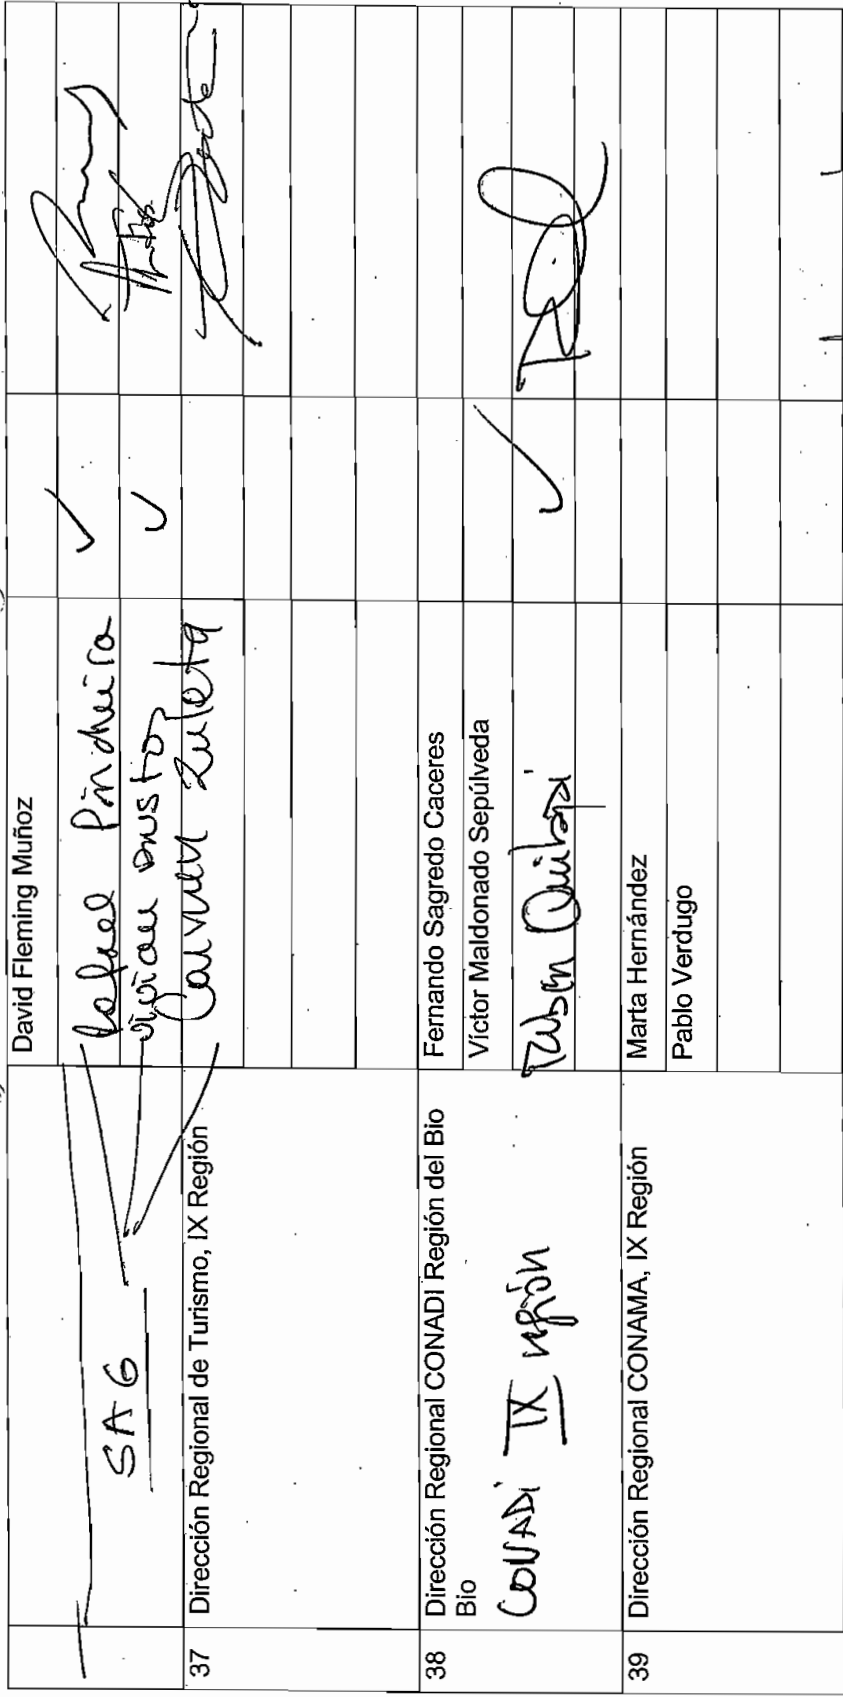 David Fleming Muñoz
SAG
Rafael Pincheira
Vivian Bustos
Carmen Zuleta
37 Dirección Regional de Turismo, IX Región
38 Dirección Regional CONADI Región del Bio
Bio
Fernando Sagredo Caceres
Víctor Maldonado Sepúlveda
CONADI IX región
Ruben
39 Dirección Regional CONAMA, IX Región
Marta Hernández
Pablo Verdugo